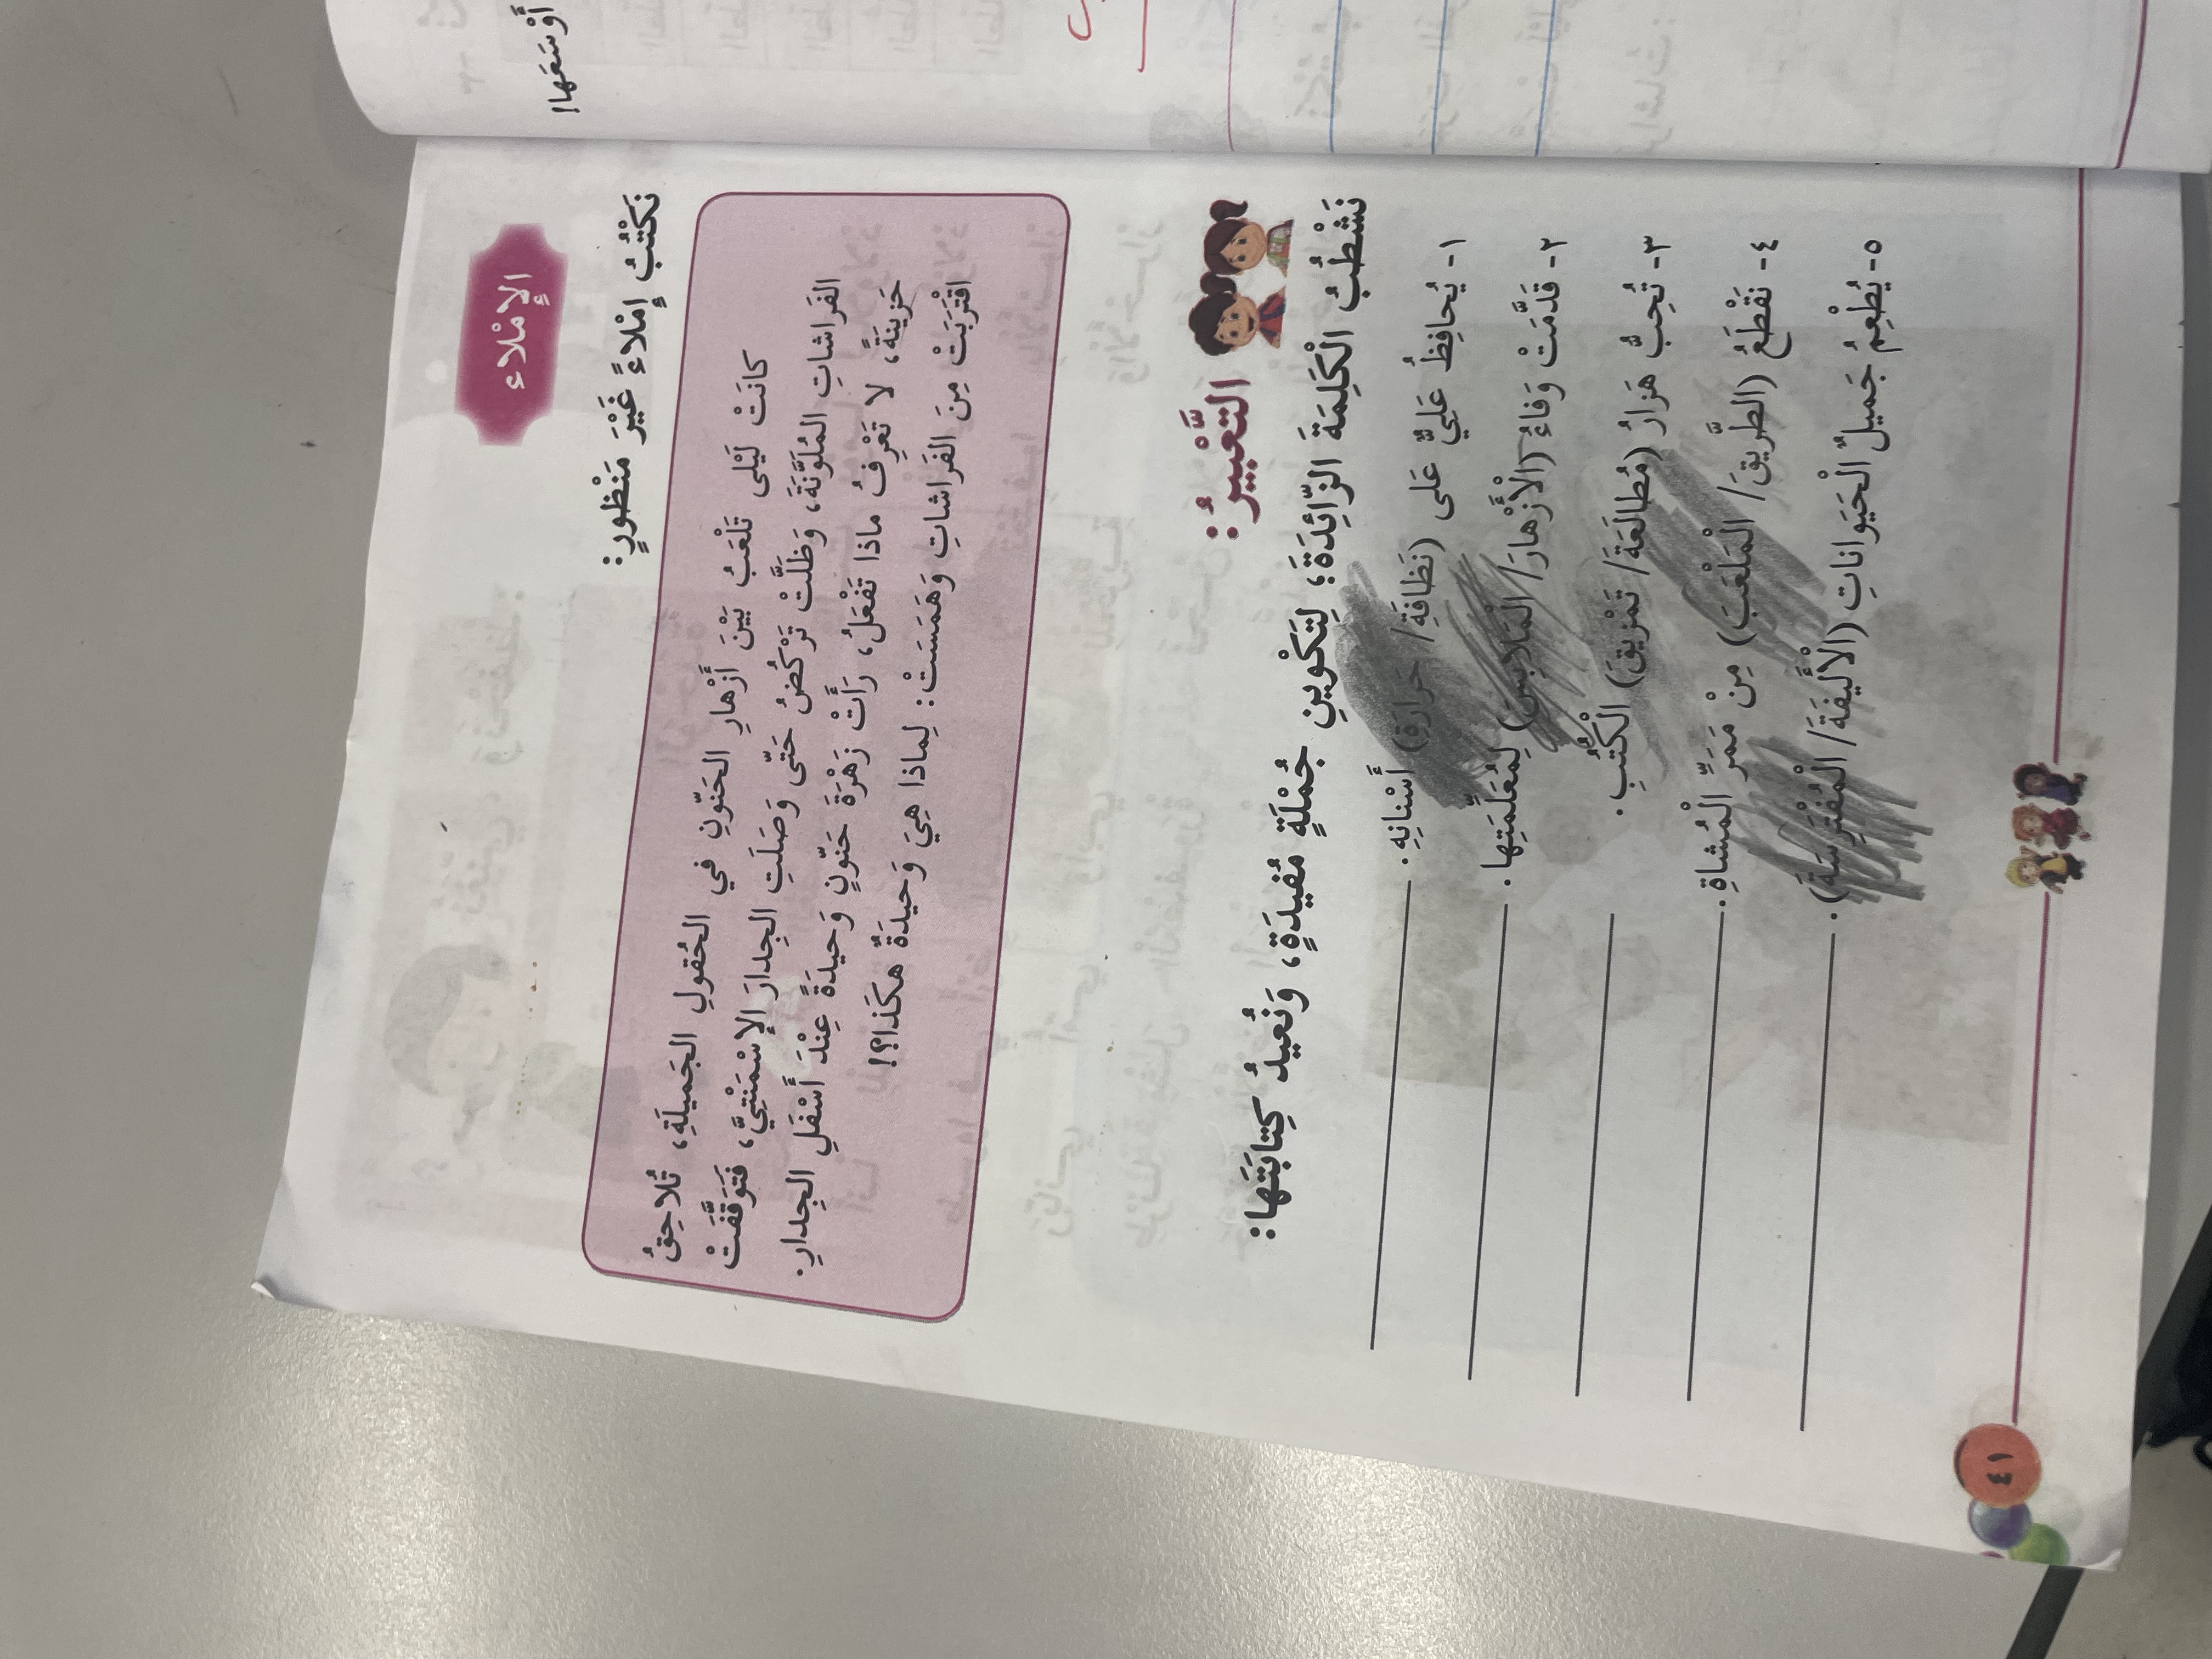 أَوْسَعَها!
الإِمْلاء
نَكْتُبُ إِمْلاءً غَيْرَ مَنْظورٍ:
كانَتْ لَيْلى تَلْعَبُ بَيْنَ أَزْهارِ الحَنّونِ في الحُقولِ الجَميلَةِ، تُلاحِقُ
الفَراشاتِ المُلَوَّنَةَ، وَظَلَّتْ تَرْكُضُ حَتّى وَصَلَتِ الجِدارَ الإِسْمَنْتِيَّ، فَتَوَقَّفَتْ
حَزينَةً، لا تَعْرِفُ ماذا تَفْعَلُ، رَأَتْ زَهْرَةَ حَنّونٍ وَحيدَةً عِنْدَ أَسْفَلِ الجِدارِ.
اقْتَرَبَتْ مِنَ الفَراشاتِ وَهَمَسَتْ: لِماذا هِيَ وَحيدَةٌ هكَذا؟!
التَّعْبيرُ:
نَشْطُبُ الْكَلِمَةَ الزّائِدَةَ؛ لِتَكْوينِ جُمْلَةٍ مُفيدَةٍ، وَنُعيدُ كِتابَتَها:
١- يُحافِظُ عَلِيٌّ عَلى (نَظافَةِ/ حَرارَةِ) أَسْنانِهِ.
٢- قَدَّمَتْ وَفاءُ (الْأَزْهارَ/ المَلابِسَ) لِمُعَلِّمَتِها.
٣- تُحِبُّ هَزارُ (مُطالَعَةَ/ تَمْزيقَ) الْكُتُبِ.
٤- نَقْطَعُ (الطَّريقَ/ الْمَلْعَبَ) مِنْ مَمَرِّ الْمُشاةِ.
٥- يُطْعِمُ جَميلٌ الْحَيَواناتِ (الْأَليفَةَ/ الْمُفْتَرِسَةَ).
٤١